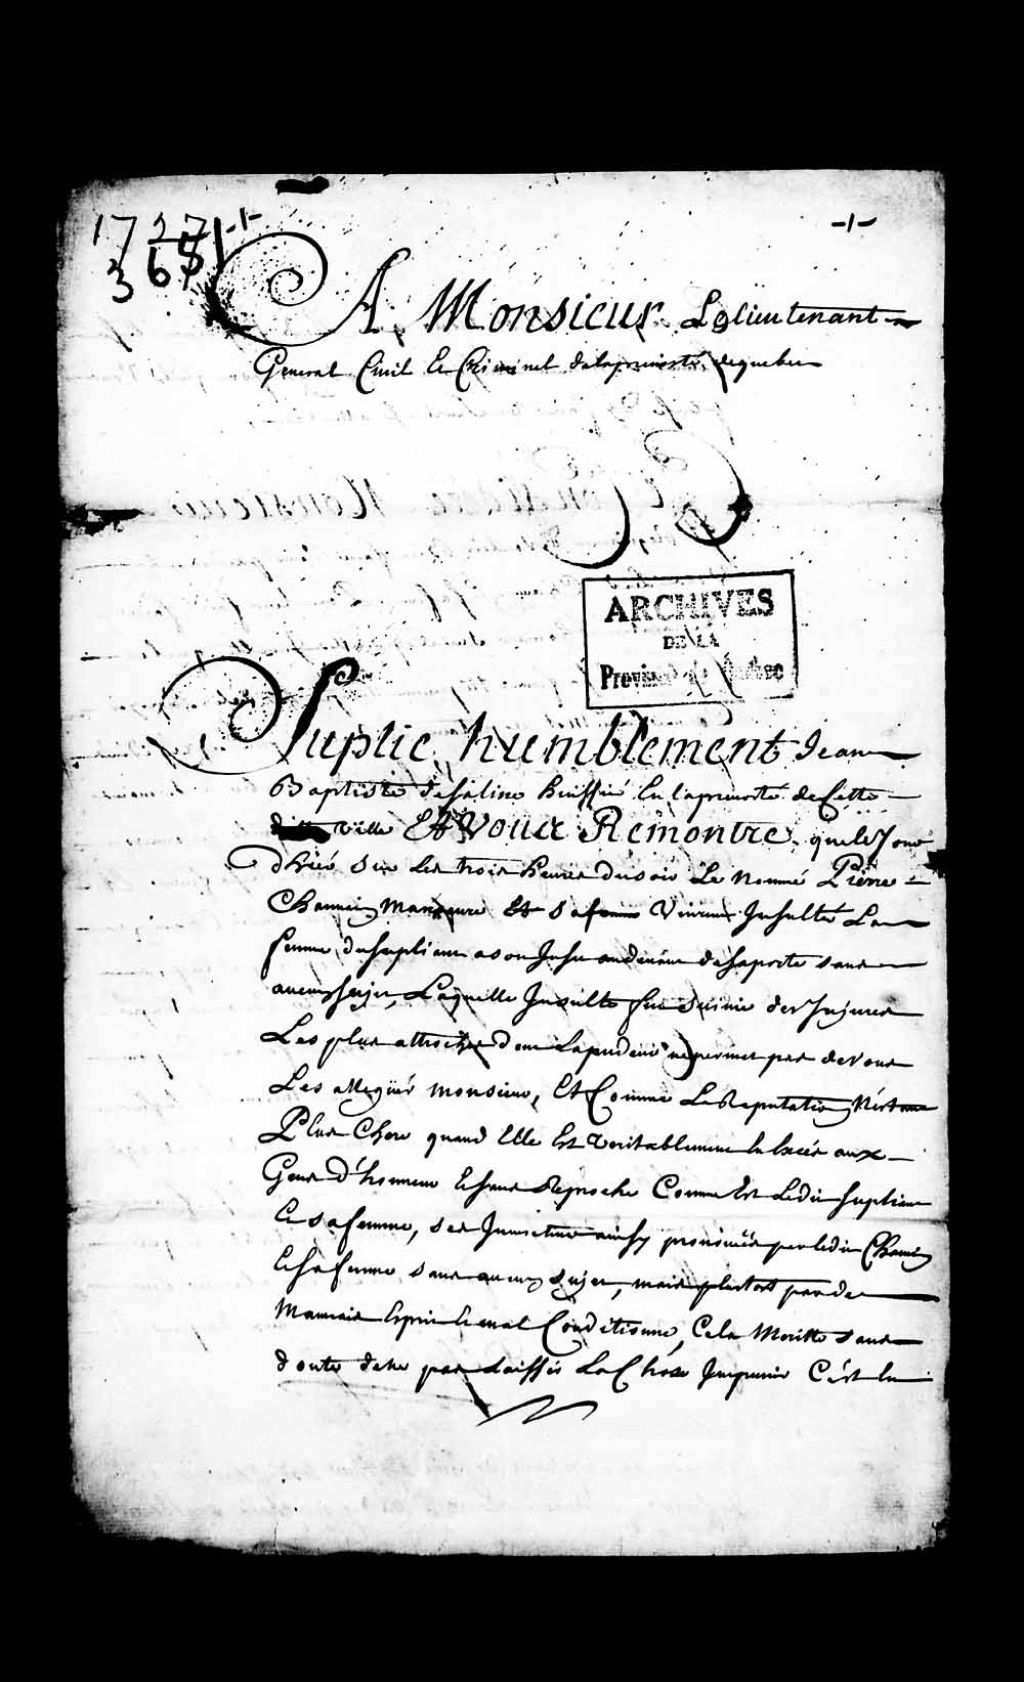 1727
368
-1-
-1-
A Monsieur Le lieutenant
General Civil Et Criminel dela prevosté de quebec
ARCHIVES
DE LA
Province de Québec
Suplie humblement Jean
Baptiste desaline huissier En la prevosté de Cette
ville Et Vous Remontre que le Jour
d'hier sur Les trois heures du soir Le nommé Pierre
Chauvin Et sa femme Vinrent Insulté La
femme du supliant a son Insu au devant de sa porte sans
aucun sujet, Laquelle Insulte fut Suivie des Injures
Les plus attroches dont La pudeur ne permet pas de vous
Les alleguér monsieur, Et Comme La Reputation N'est une
Plus Chere quand Elle Est veritablement aux
Gens d'honneur Et sans Reproche Comme Est Ledit supliant
Et sa femme, ses Invectives ainsy prononcées par ledit Chauvin
Et sa femme sans aucun sujet, mais plustost par de
Mauvais Esprit Et mal Conditionné, Cela Meritte sans
doute de ne pas Laisser La Chose Impunie C'est